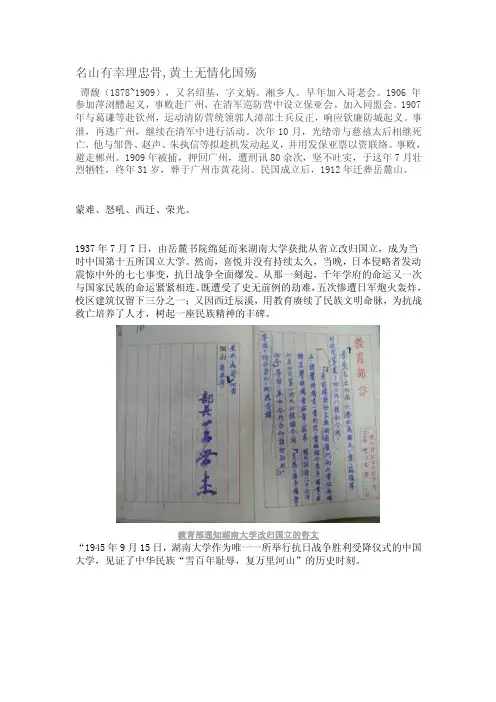 名山有幸埋忠骨,黄土无情化国殇
谭馥（1878~1909），又名绍基，字文炳。湘乡人。早年加入哥老会。1906 年
参加萍浏醴起义，事败赴广州，在清军巡防营中设立保亚会，加入同盟会。1907
年与葛谦等赴钦州，运动清防营统领郭人漳部士兵反正，响应钦廉防城起义。事
泄，再逃广州，继续在清军中进行活动。次年 10 月，光绪帝与慈禧太后相继死
亡，他与邹鲁、赵声、朱执信等拟趁机发动起义，并用发保亚票以资联络。事败，
避走郴州。1909年被捕，押回广州，遭刑讯80余次，坚不吐实，于这年7月壮
烈牺牲，终年31岁，葬于广州市黄花岗。民国成立后，1912年迁葬岳麓山。
蒙难、怒吼、西迁、荣光。
1937 年 7 月 7 日，由岳麓书院绵延而来湖南大学获批从省立改归国立，成为当
时中国第十五所国立大学。然而，喜悦并没有持续太久，当晚，日本侵略者发动
震惊中外的七七事变，抗日战争全面爆发。从那一刻起，千年学府的命运又一次
与国家民族的命运紧紧相连。既遭受了史无前例的劫难，五次惨遭日军炮火轰炸，
校区建筑仅留下三分之一；又因西迁辰溪，用教育赓续了民族文明命脉，为抗战
救亡培养了人才，树起一座民族精神的丰碑。
教育部咨
教育部通知湖南大学改归国立的咨文
“1945 年 9 月 15 日，湖南大学作为唯一一所举行抗日战争胜利受降仪式的中国
大学，见证了中华民族“雪百年耻辱，复万里河山”的历史时刻。